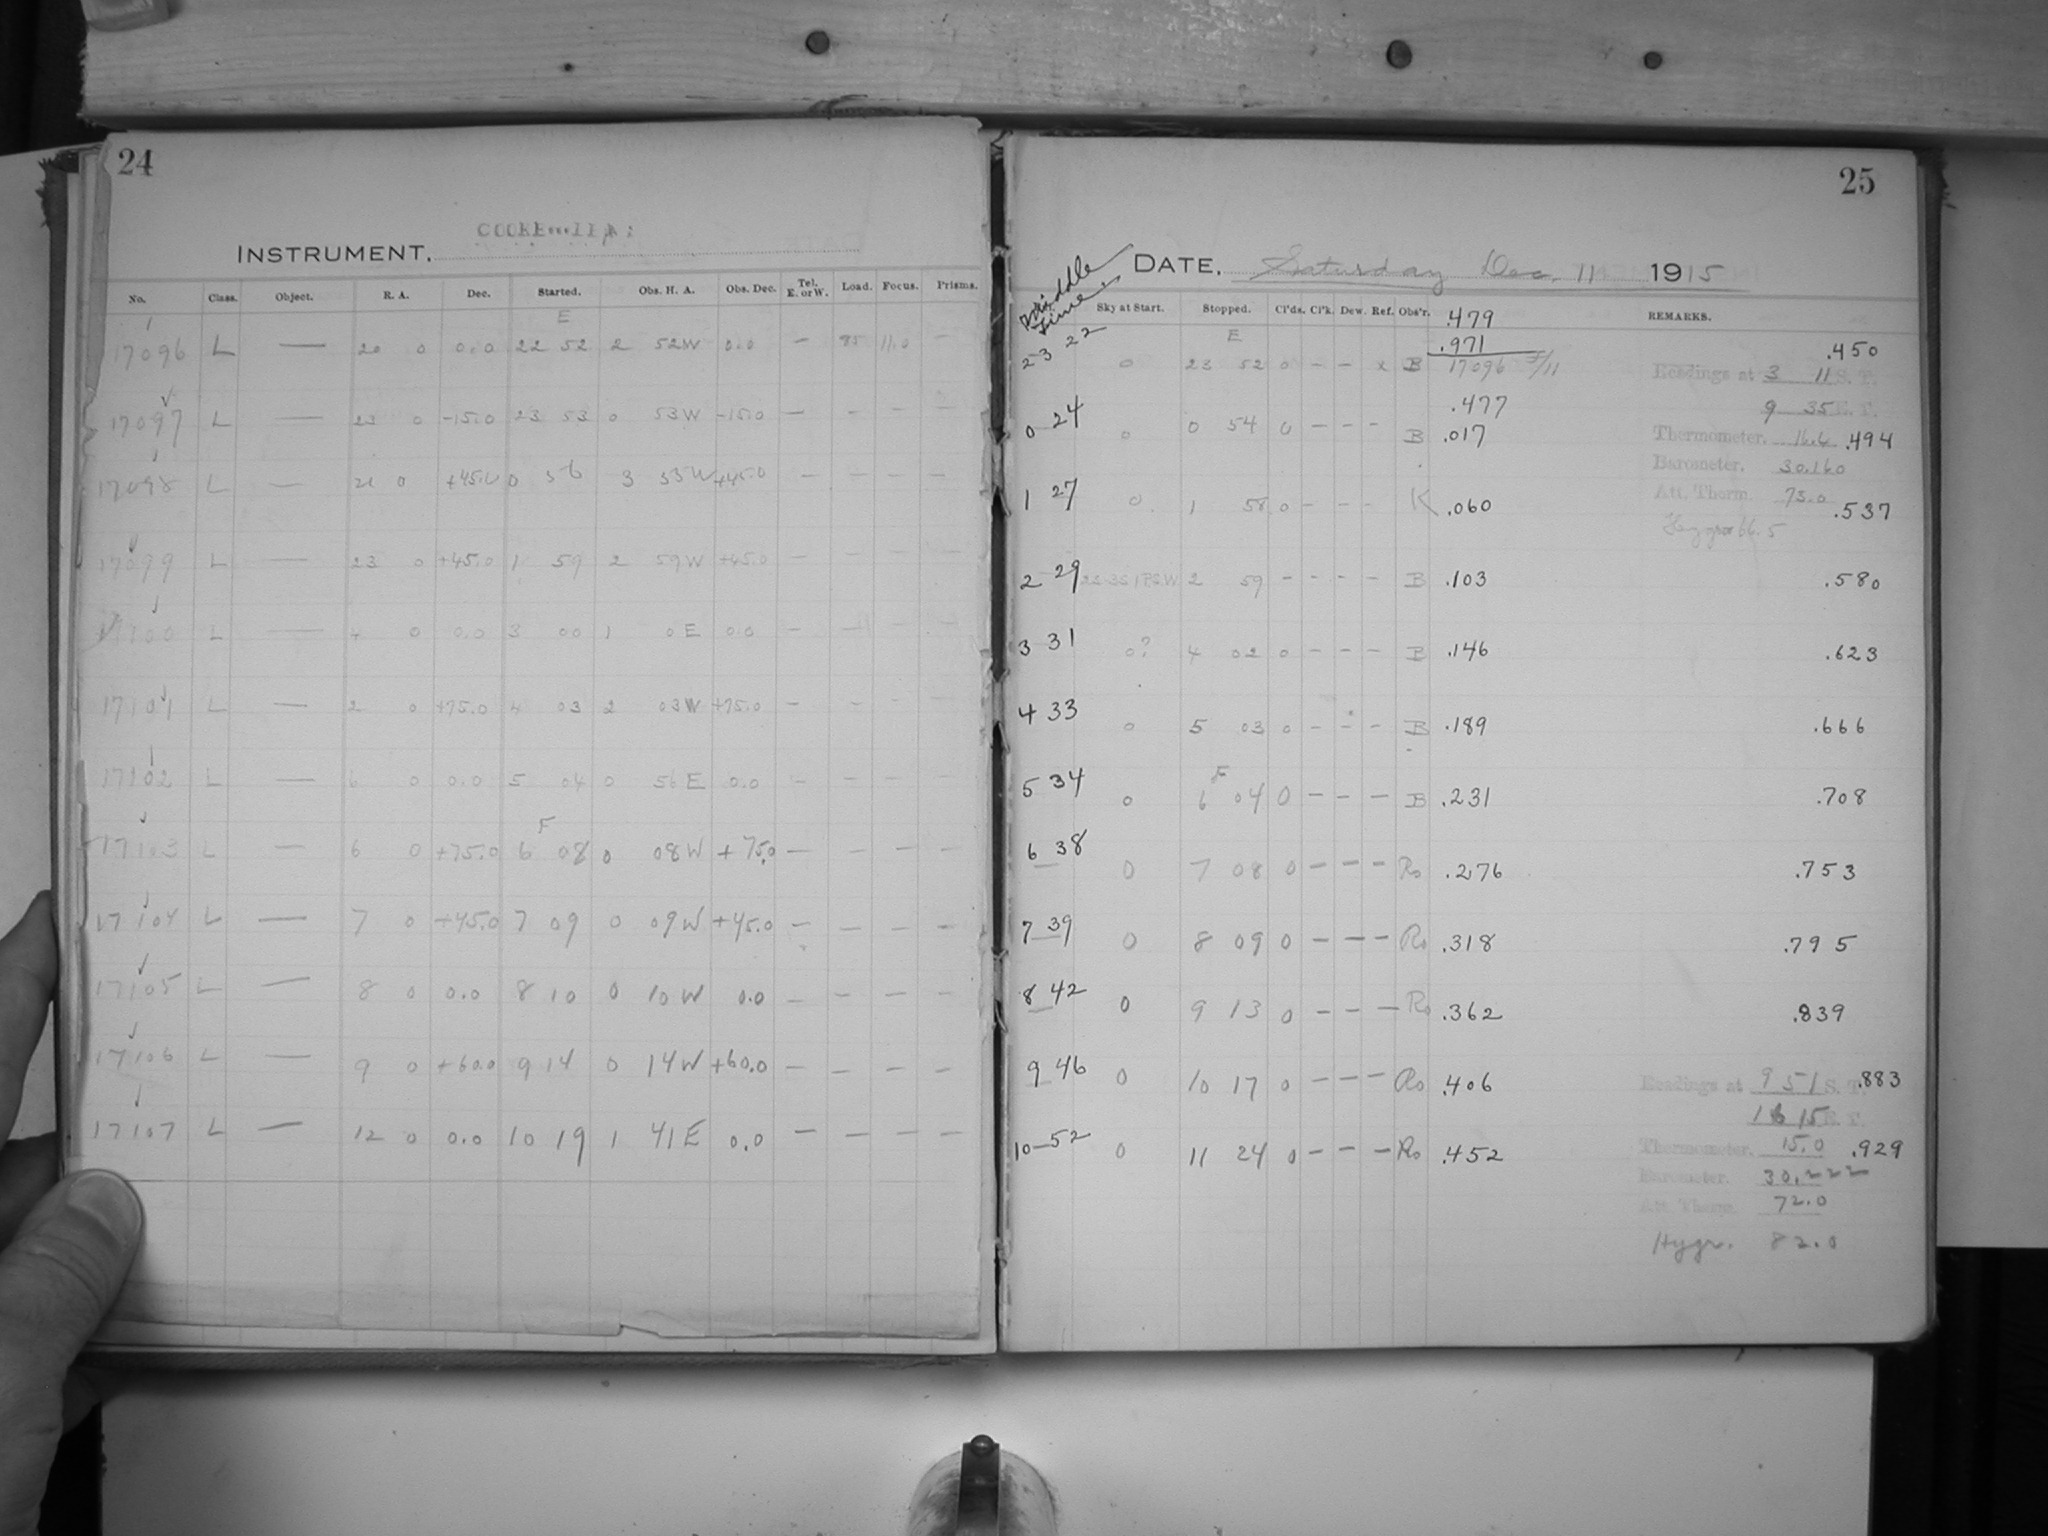 24
INSTRUMENT.
No. Class. Object. R. A. Dec. Started. Obs. H. A. Obs. Dec. Tel. E. or W. Load. Focus. Prisms.
E
17096 L — 20 0 0.0 22 52 2 52W 0.0 — 85 11.0 —
17097 L — 23 0 -15.0 23 53 0 53W -15.0 — — — —
17098 L — 21 0 +45.0 0 56 3 53W +45.0 — — — —
17099 L — 23 0 +45.0 1 59 2 59W +45.0 — — — —
17100 L — 4 0 0.0 3 00 1 0E 0.0 — — — —
17101 L — 2 0 +75.0 4 03 2 03W +75.0 — — — —
17102 L — 6 0 0.0 5 04 0 56E 0.0 — — — —
F
17103 L — 6 0 +75.0 6 08 0 08W +75.0 — — — —
17104 L — 7 0 +45.0 7 09 0 09W +45.0 — — — —
17105 L — 8 0 0.0 8 10 0 10W 0.0 — — — —
17106 L — 9 0 +60.0 9 14 0 14W +60.0 — — — —
17107 L — 12 0 0.0 10 19 1 41E 0.0 — — — —
25
DATE. Saturday Dec. 11 1915
Middle Time.
Sky at Start. Stopped. Cl'ds. Cl'k. Dew. Ref. Obs'r. REMARKS.
.479
.971
E
23 22 0 23 52 0 — — x B 17096 .450
Readings at 3 11 S. T.
.477
9 35 E. T.
0 24 0 0 54 0 — — — B .017
Thermometer. .494
Barometer. 30.160
Att. Therm. 73.0
1 27 0 1 58 0 — — — K .060 .537
66.5
2 29 2 59 — — — — B .103 .580
3 31 0? 4 02 0 — — — B .146 .623
4 33 0 5 03 0 — — — B .189 .666
F
5 34 0 6 04 0 — — — B .231 .708
6 38 0 7 08 0 — — — Ro .276 .753
7 39 0 8 09 0 — — — Ro .318 .795
8 42 0 9 13 0 — — — Ro .362 .839
9 46 0 10 17 0 — — — Ro .406 .883
Readings at 9 51 S. T.
16 15 E. T.
10 52 0 11 24 0 — — — Ro .452 .929
Thermometer. 15.0
Barometer. 30.222
Att. Therm. 72.0
Hygr. 82.0